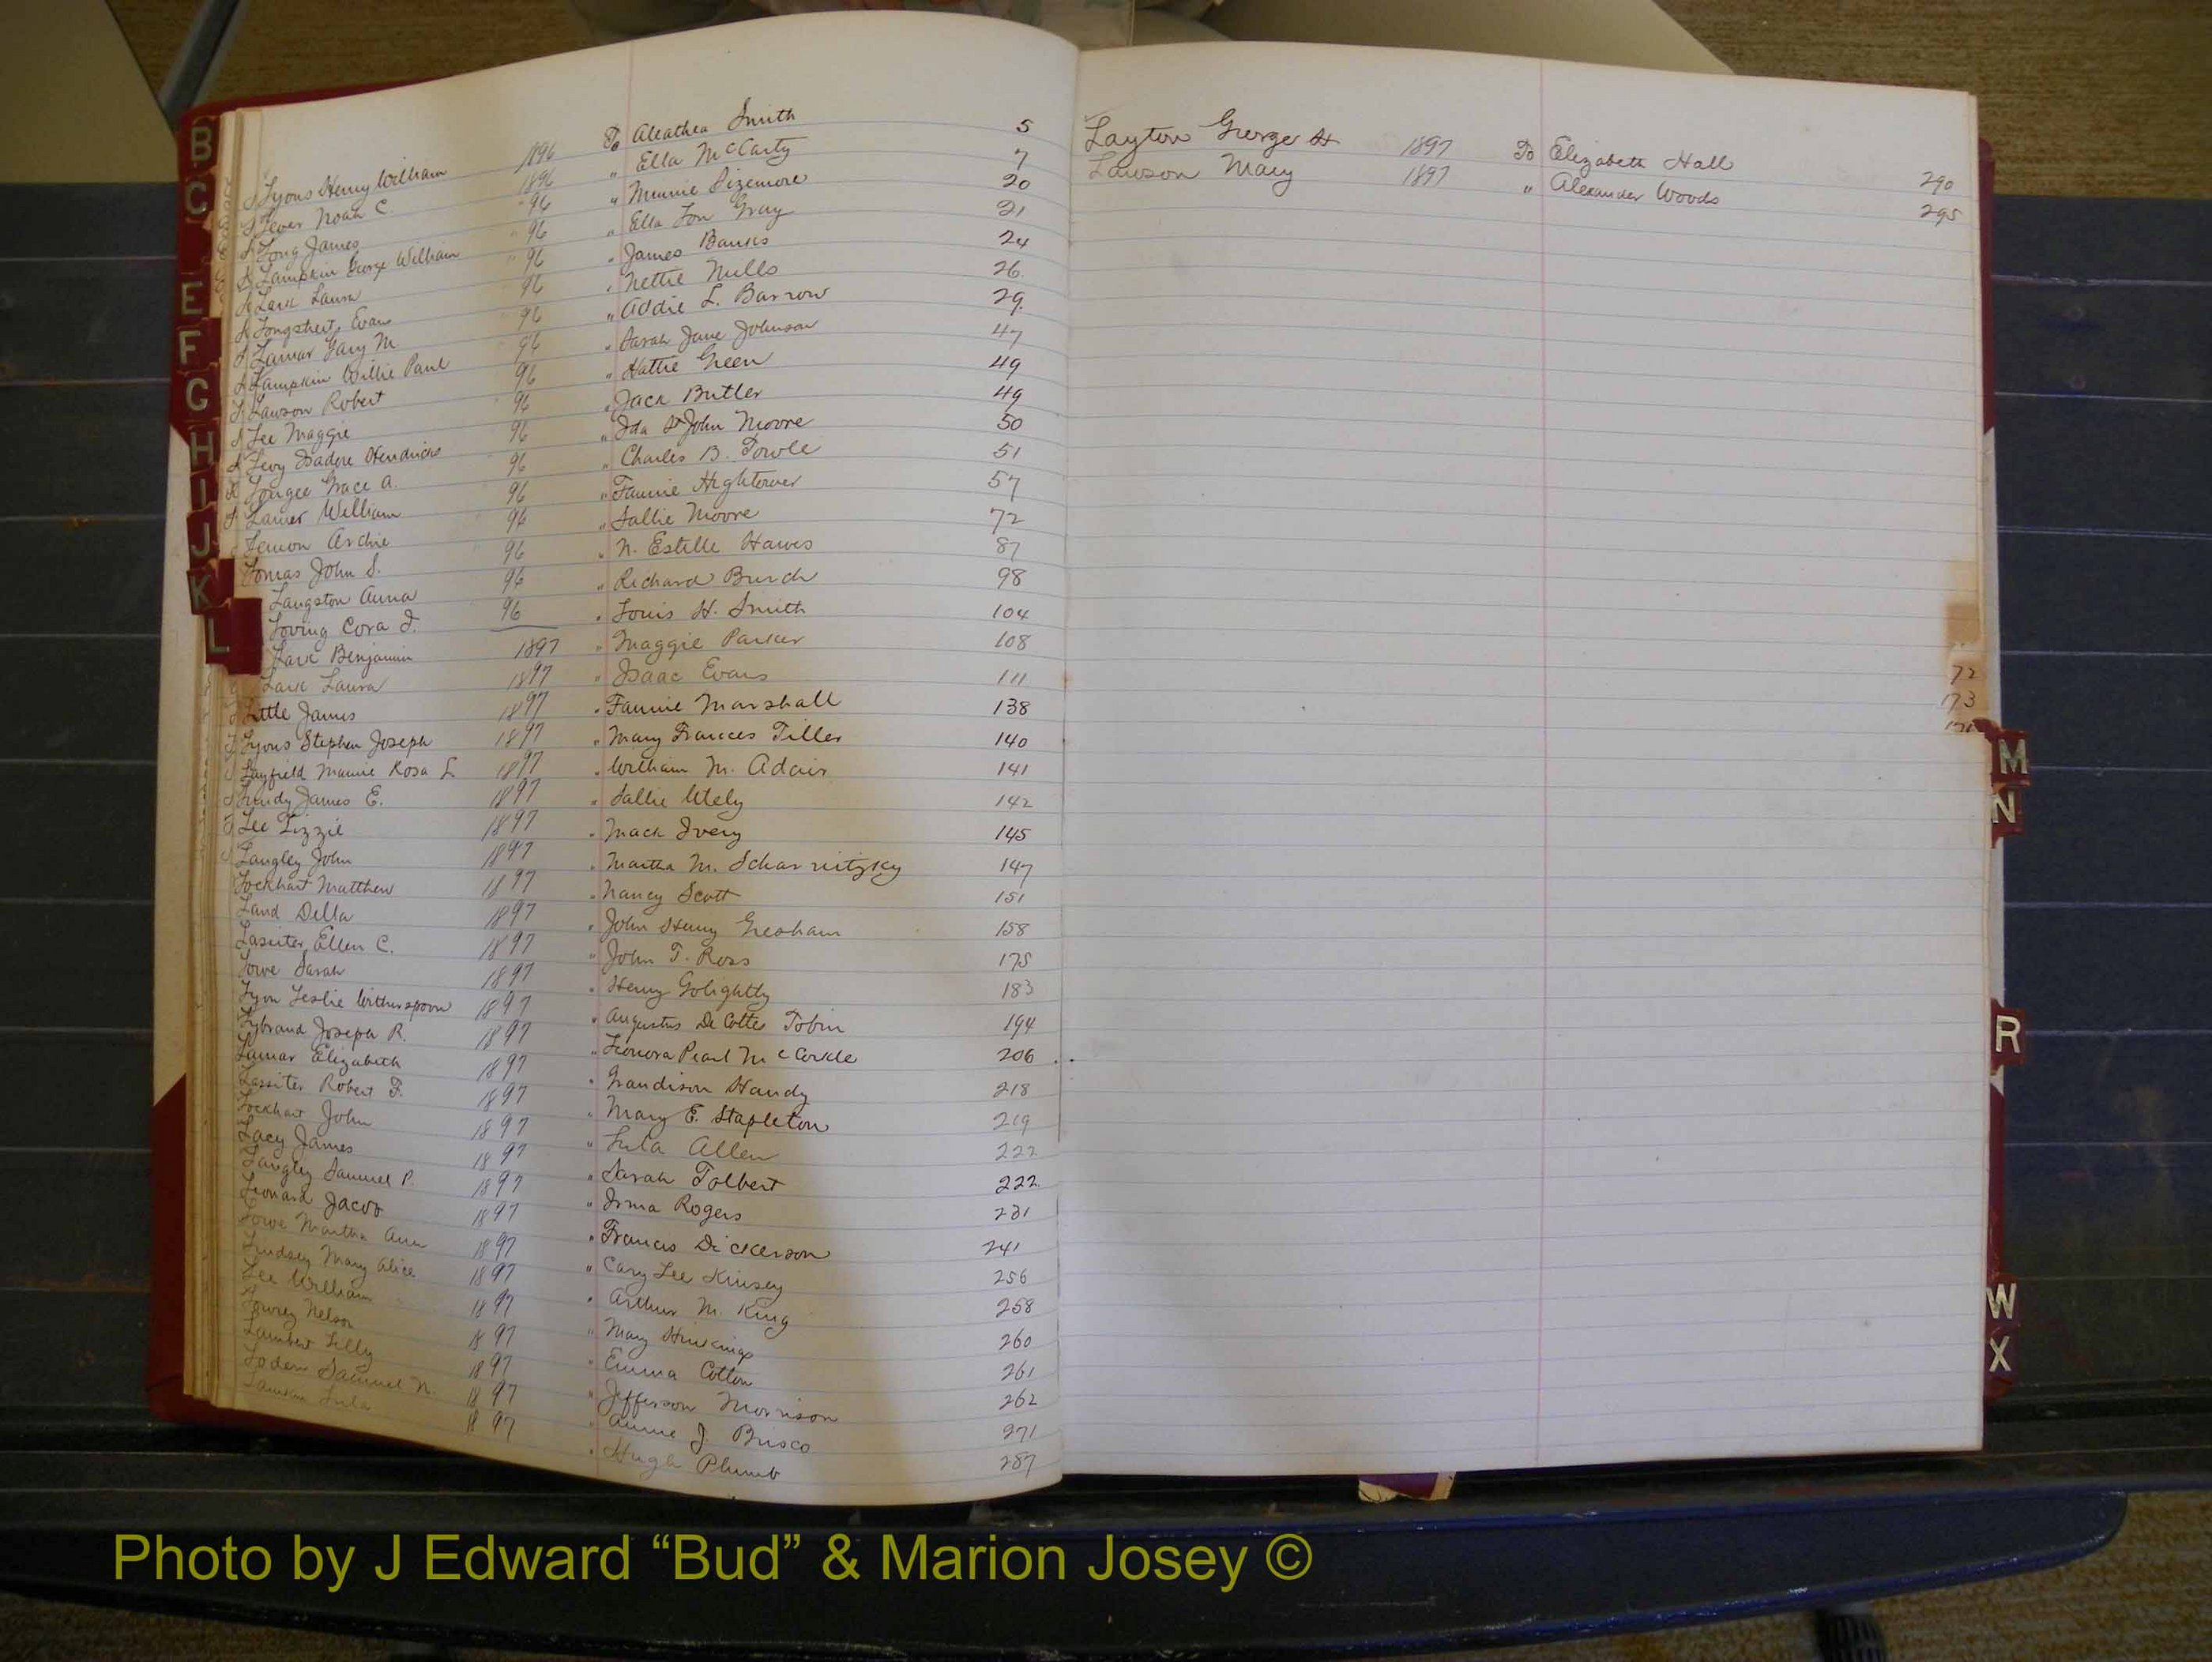 B
C
E
F
G
H
I
J
K
L
Lyons Henry William 1896 To Aleathea Smith 5
Lever Noah C. 1896 " Ella McCarty 7
Long James " 96 " Minnie Sizemore 20
Lampkin George William " 96 " Ella Lou Gray 21
Lark Laura " 96 " James Banks 24
Longstreet, Evan 96 " Nettie Mills 26
Lamar Gary M 96 " Addie L. Barrow 29
Lampkin Willie Paul 96 " Sarah Jane Johnson 47
Lawson Robert 96 " Hattie Green 49
Lee Maggie 96 " Jack Butler 49
Levy Isadore Hendricks 96 " Ida St John Moore 50
Lougee Grace A. 96 " Charles B. Towle 51
William 96 " Fannie Hightower 57
Lemon Archie 96 " Sallie Moore 72
Lomas John S. 96 " N. Estelle Hawes 87
Langston Anna 96 " Richard Burch 98
Loving Cora J. 96 " Louis H. Smith 104
Lark Benjamin 1897 " Maggie Parker 108
Lark Laura 1897 " Isaac Evans 111
Little James 1897 " Fannie Marshall 138
Lyons Stephen Joseph 1897 " Mary Frances Tiller 140
Layfield Mamie Rosa L. 1897 " William M. Adair 141
Lundy James E. 1897 " Sallie Utely 142
Lee Lizzie 1897 " Mack Ivery 145
Langley John 1897 " Martha M. Scharnitzky 147
Lockhart Matthew 1897 " Nancy Scott 151
Land Della 1897 " John Henry Gresham 158
Lasiter, Ellen C. 1897 " John T. Ross 175
Lowe Sarah 1897 " Henry Golightly 183
Lyon Leslie Witherspoon 1897 " Augustus De Cotte Tobin 194
Lybrand Joseph R. 1897 " Leonora Pearl McCorkle 206
Lamar Elizabeth 1897 " Grandison Handy 218
Lassiter Robert F. 1897 " Mary E. Stapleton 219
Lockhart John 1897 " Lula Allen 222
Lacy James 1897 " Sarah Tolbert 222
Langley Samuel P. 1897 " Irma Rogers 231
Leonard Jacob 1897 " Frances Dickerson 241
Lowe Martha Ann 1897 " Cary Lee Kinsey 256
Lindsey Mary Alice 1897 " Arthur M. King 258
Lee William 1897 " Mary 260
Lowrey Nelson 1897 " Emma Cotton 261
Lambert Lilly 1897 " Jefferson Morrison 262
Loden Samuel N. 1897 " Annie J. Brisco 271
Lamkin Lula 1897 " Hugh Plumb 287
Layton George H 1897 To Elizabeth Hall 290
Lawson Mary 1897 " Alexander Woods 295
72
173
M
N
R
W
X
Photo by J Edward “Bud” & Marion Josey ©